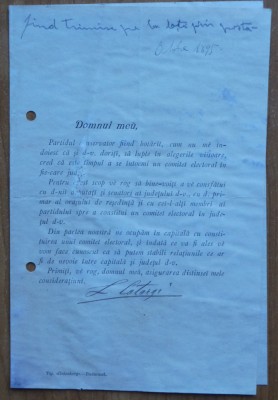 fiind trimise pe la toți prin poștă
1895
Domnul meu,
Partidul conservator fiind hotărît, cum nu mě în-
doiesc că și d-v. doriți, să lupte în alegerile viitoare,
cred că este timpul a se întocmi un comitet electoral în
fie-care județ.
Pentru acest scop vě rog să binevoiți a vě constitui
cu d-nii deputați și senatori ai județului d-v., cu d. pri-
mar al orașului de reședință și cu cei-l-alți membri ai
partidului spre a constitui un comitet electoral în ju-
dețul d-v.
Din partea noastră ne ocupăm în capitală cu consti-
tuirea unui comitet electoral, și îndată ce va fi ales vě
vom face cunoscut ca să putem stabili relațiunile ce ar
fi de nevoie între capitală și județul d-v.
Primiți, vě rog, domnul meu, asigurarea distinsei mele
considerațiuni.
L. Catargi
Tip.